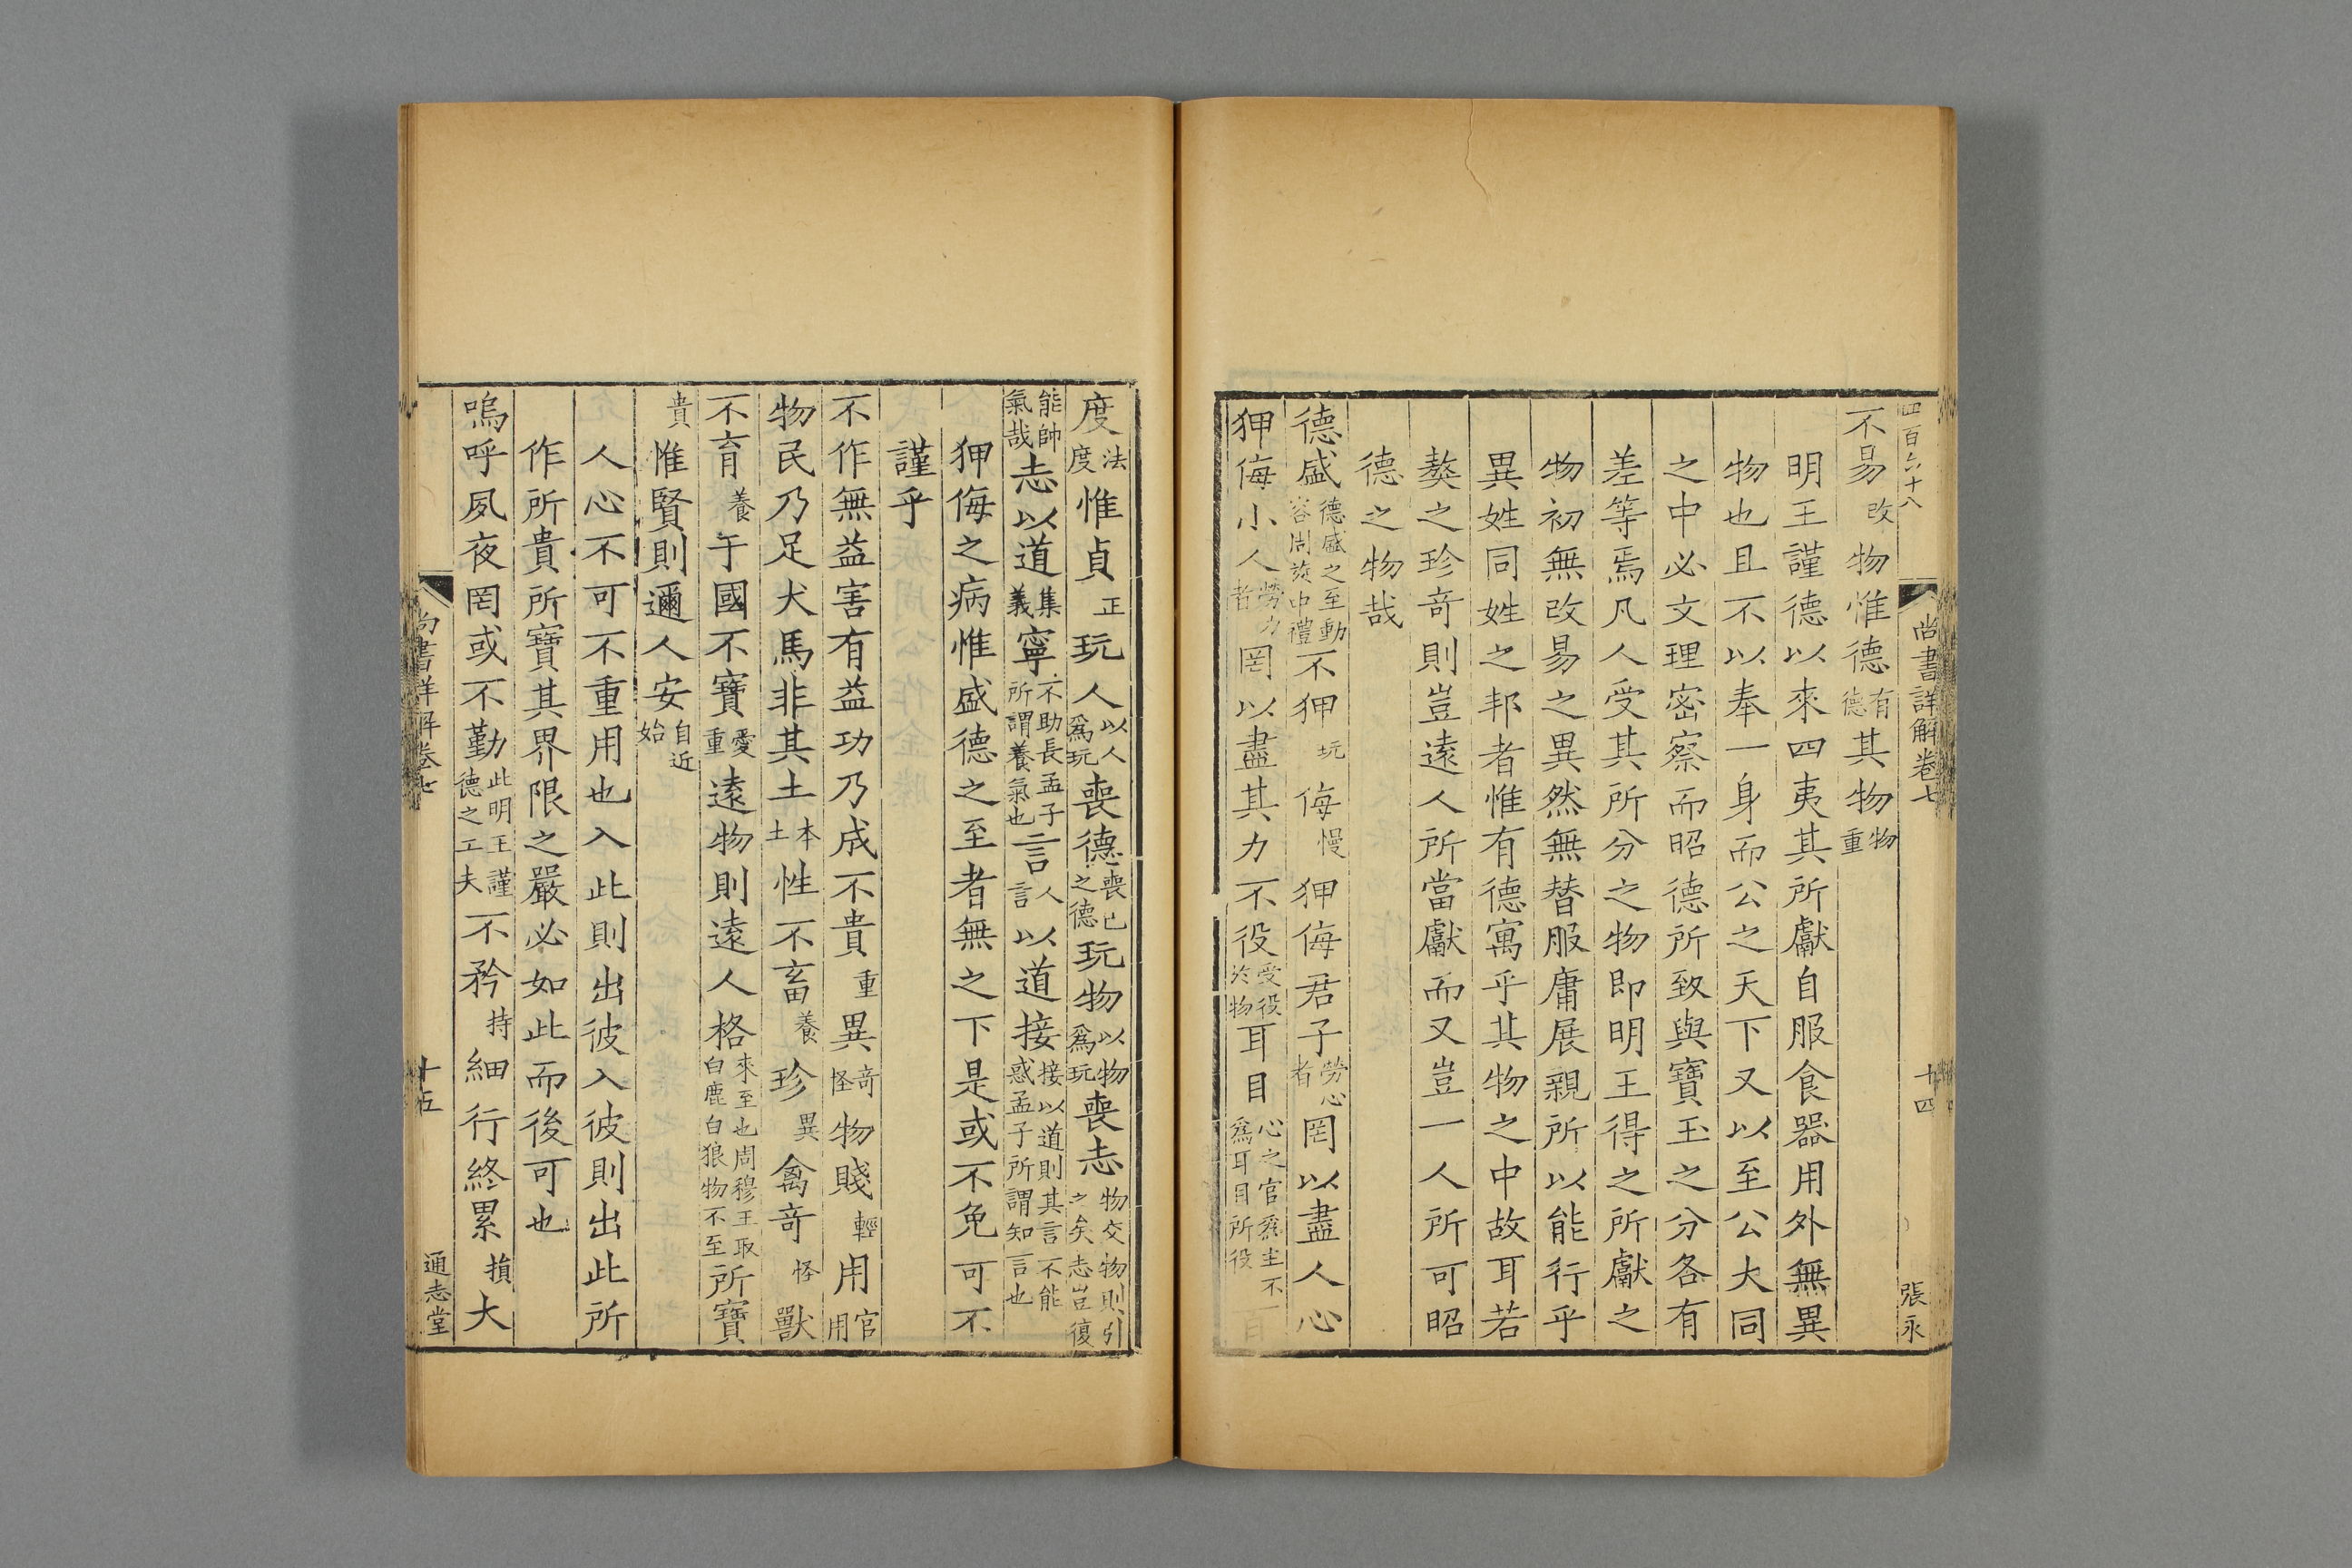 四百六十八
尚書詳解卷七 十四 張永
不易改物惟德有德其物物重
明王謹德以來四夷其所獻自服食器用外無異
物也且不以奉一身而公之天下又以至公大同
之中必文理密察而昭德所致與寶玉之分各有
差等焉凡人受其所分之物即明王得之所獻之
物初無改易之異然無替服庸展親所以能行乎
異姓同姓之邦者惟有德寓乎其物之中故耳若
獒之珍奇則豈遠人所當獻而又豈一人所可昭
德之物哉
德盛德盛之至動容周旋中禮不狎玩侮慢狎侮君子勞心者罔以盡人心
狎侮小人勞力者罔以盡其力不役受役於物耳目心之官爲主不爲耳目所役百
度法度惟貞正玩人以人爲玩喪德喪己之德玩物以物爲玩喪志物交物則引之矣志豈復
能帥氣哉志以道集義寧不助長孟子所謂養氣也言人言以道接接以道則其言不能惑孟子所謂知言也
狎侮之病惟盛德之至者無之下是或不免可不
謹乎
不作無益害有益功乃成不貴重異奇怪物賤輕用官用
物民乃足犬馬非其土本土性不畜養珍異禽奇怪獸
不育養于國不寶愛重遠物則遠人格來至也周穆王取白鹿白狼物不至所寶
貴惟賢則邇人安自近始
人心不可不重用也入此則出彼入彼則出此所
作所貴所寶其界限之嚴必如此而後可也
嗚呼夙夜罔或不勤此明王謹德之工夫不矜持細行終累損大
尚書詳解卷七 十五 通志堂